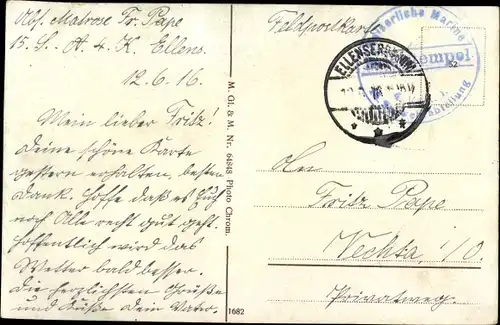 Abs. Matrose Fr. Pape
15. S. A. 4. K. Ellens.
12.6.16.
Mein lieber Fritz!
Deine schöne Karte
gestern erhalten, besten
Dank. Hoffe daß es Euch
noch Alle recht gut geht.
Hoffentlich wird das
Wetter bald besser.
Die herzlichsten Grüße
und Küße Dein Vater.
M. Gl. & M. Nr. 64848 Photo Chrom.
1682
Feldpostkarte
Kaiserliche Marine
ELLENSERDAMM
An
Fritz Pape
Vechta i/O.
Privatweg.